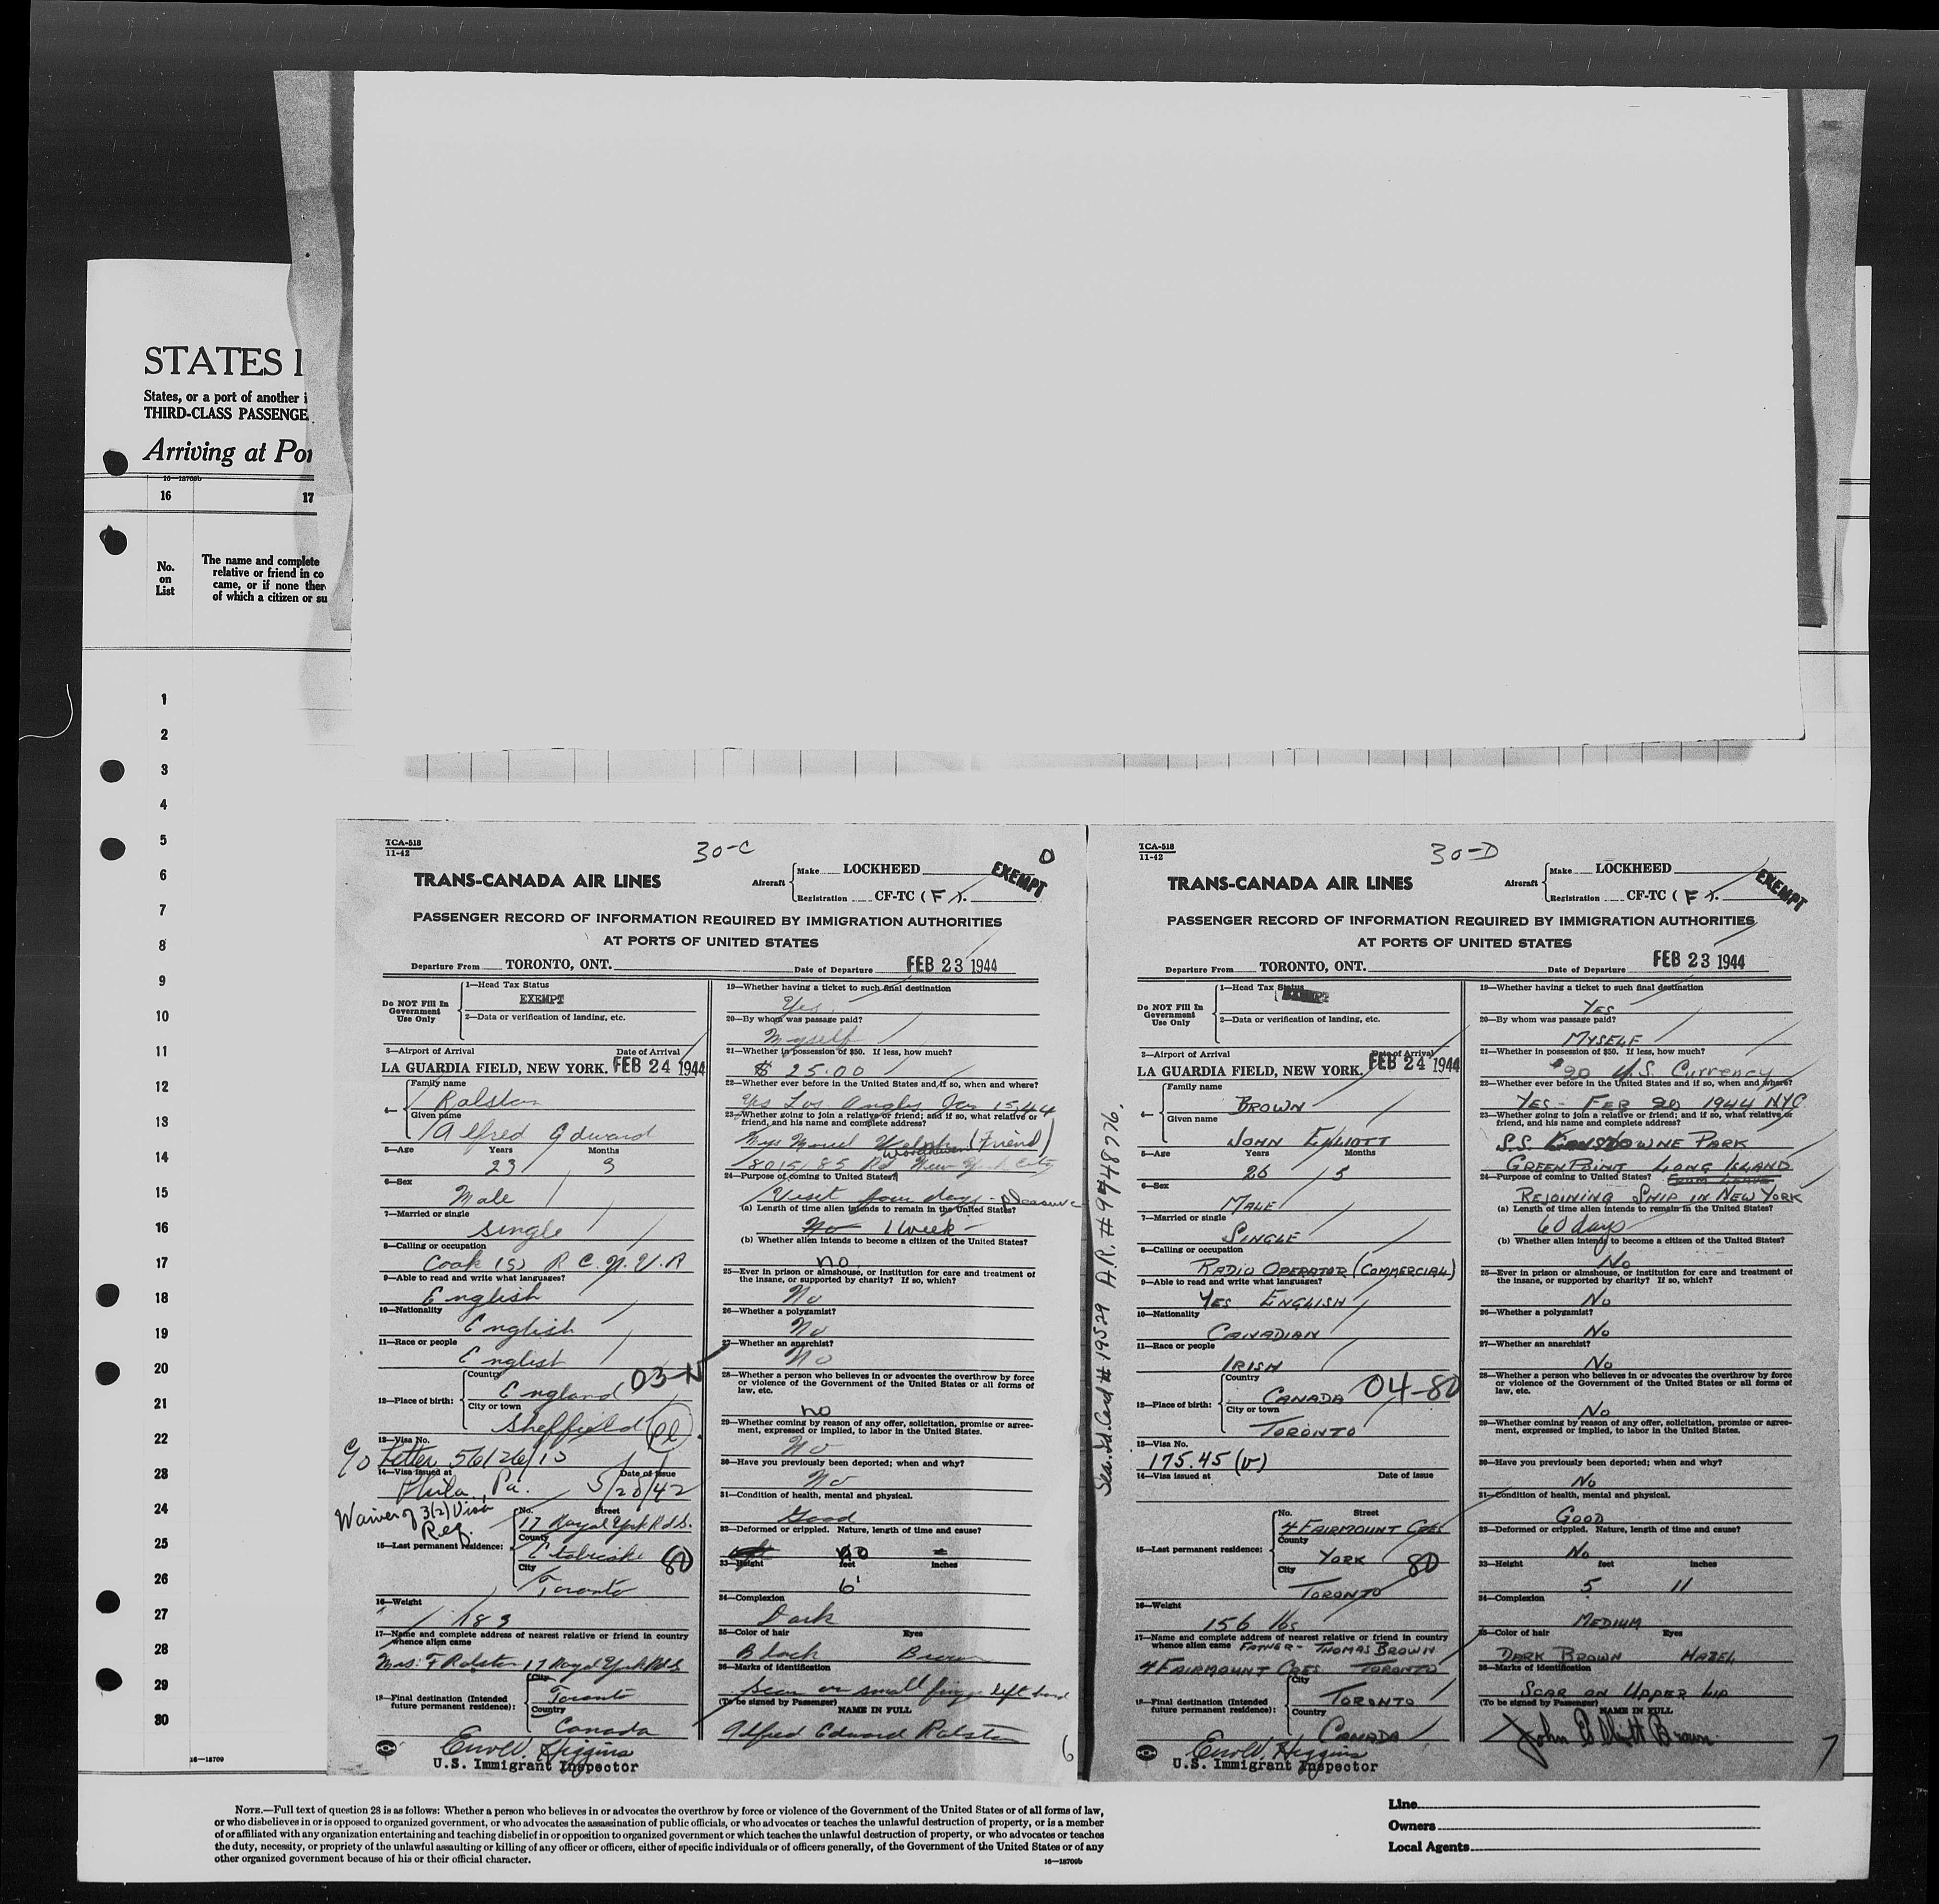 STATES I
States, or a port of another i
THIRD-CLASS PASSENGE
Arriving at Por
16—18709b
16 17
No.
on
List
The name and complete
relative or friend in co
came, or if none ther
of which a citizen or su
1
2
3
4
5
6
7
8
9
10
11
12
13
14
15
16
17
18
19
20
21
22
23
24
25
26
27
28
29
30
16—18709
TCA-518
11-42
30-C
TRANS-CANADA AIR LINES
Aircraft
Make LOCKHEED
Registration CF-TC (F).
EXEMPT
PASSENGER RECORD OF INFORMATION REQUIRED BY IMMIGRATION AUTHORITIES
AT PORTS OF UNITED STATES
Departure From TORONTO, ONT. Date of Departure FEB 23 1944
Do NOT Fill In
Government
Use Only
1—Head Tax Status
EXEMPT
2—Data or verification of landing, etc.
3—Airport of Arrival Date of Arrival
LA GUARDIA FIELD, NEW YORK. FEB 24 1944
4—
Family name
Ralston
Given name
Alfred Edward
5—Age Years Months
23 3
6—Sex
Male
7—Married or single
single
8—Calling or occupation
Cook (S) R C. N. V. R
9—Able to read and write what languages?
English
10—Nationality
English
11—Race or people
English
03-N
12—Place of birth:
Country
England
City or town
Sheffield
13—Visa No.
C/O Letter 56126/13
14—Visa issued at Date of Issue
Phila., Pa. 5/28/42
Waiver of 3(2) Visa
Req.
15—Last permanent residence:
No. Street
17 Royal York Rd S.
County
Etobicoke 80
City
Toronto
16—Weight
183
17—Name and complete address of nearest relative or friend in country
whence alien came
Mrs. F Ralston 17 Royal York Rd S
18—Final destination (Intended
future permanent residence):
City
Toronto
Country
Canada
Errol V. Higgins
U.S. Immigrant Inspector
19—Whether having a ticket to such final destination
Yes
20—By whom was passage paid?
Myself
21—Whether in possession of $50. If less, how much?
$ 25.00
22—Whether ever before in the United States and if so, when and where?
Yes Los Angles Jan 15, 44
23—Whether going to join a relative or friend; and if so, what relative or
friend, and his name and complete address?
(Friend)
8015/85 Rd Woodhaven New York City
24—Purpose of coming to United States?
Visit four days - pleasure
(a) Length of time alien intends to remain in the United States?
No 1 week -
(b) Whether alien intends to become a citizen of the United States?
no
25—Ever in prison or almshouse, or institution for care and treatment of
the insane, or supported by charity? If so, which?
No
26—Whether a polygamist?
No
27—Whether an anarchist?
No
28—Whether a person who believes in or advocates the overthrow by force
or violence of the Government of the United States or all forms of
law, etc.
no
29—Whether coming by reason of any offer, solicitation, promise or agree-
ment, expressed or implied, to labor in the United States.
No
30—Have you previously been deported; when and why?
No
31—Condition of health, mental and physical.
Good
32—Deformed or crippled. Nature, length of time and cause?
No
33—Height feet inches
6'
34—Complexion
Dark
35—Color of hair Eyes
Black Brown
36—Marks of identification
Scar on small finger left hand
(To be signed by Passenger) NAME IN FULL
Alfred Edward Ralston
6
TCA-518
11-42
30-D
TRANS-CANADA AIR LINES
Aircraft
Make LOCKHEED
Registration CF-TC (F).
EXEMPT
PASSENGER RECORD OF INFORMATION REQUIRED BY IMMIGRATION AUTHORITIES
AT PORTS OF UNITED STATES
Departure From TORONTO, ONT. Date of Departure FEB 23 1944
Sea. Id. Card # 19529 A.R. # 9948776.
Do NOT Fill In
Government
Use Only
1—Head Tax Status
EXEMPT
2—Data or verification of landing, etc.
3—Airport of Arrival Date of Arrival
LA GUARDIA FIELD, NEW YORK. FEB 24 1944
4—
Family name
BROWN
Given name
JOHN ELLIOTT
5—Age Years Months
26 5
6—Sex
MALE
7—Married or single
SINGLE
8—Calling or occupation
RADIO OPERATOR (COMMERCIAL)
9—Able to read and write what languages?
YES ENGLISH
10—Nationality
CANADIAN
11—Race or people
IRISH
12—Place of birth:
Country
CANADA 04-80
City or town
TORONTO
13—Visa No.
175.45 (v)
14—Visa issued at Date of issue
15—Last permanent residence:
No. Street
4 FAIRMOUNT CRES
County
YORK 80
City
TORONTO
16—Weight
156 lbs
17—Name and complete address of nearest relative or friend in country
whence alien came FATHER - THOMAS BROWN
4 FAIRMOUNT CRES TORONTO
18—Final destination (Intended
future permanent residence):
City
TORONTO
Country
CANADA
Errol V. Higgins
U.S. Immigrant Inspector
19—Whether having a ticket to such final destination
YES
20—By whom was passage paid?
MYSELF
21—Whether in possession of $50. If less, how much?
$20 U.S. Currency
22—Whether ever before in the United States and if so, when and where?
YES - FEB 20 1944 NYC
23—Whether going to join a relative or friend; and if so, what relative or
friend, and his name and complete address?
S.S. LANSDOWNE PARK
GREENPOINT LONG ISLAND
24—Purpose of coming to United States? FROM LEAVE
REJOINING SHIP IN NEW YORK
(a) Length of time alien intends to remain in the United States?
60 days
(b) Whether alien intends to become a citizen of the United States?
No
25—Ever in prison or almshouse, or institution for care and treatment of
the insane, or supported by charity? If so, which?
No
26—Whether a polygamist?
No
27—Whether an anarchist?
No
28—Whether a person who believes in or advocates the overthrow by force
or violence of the Government of the United States or all forms of
law, etc.
No
29—Whether coming by reason of any offer, solicitation, promise or agree-
ment, expressed or implied, to labor in the United States.
30—Have you previously been deported; when and why?
No
31—Condition of health, mental and physical.
GOOD
32—Deformed or crippled. Nature, length of time and cause?
No
33—Height feet inches
5 11
34—Complexion
MEDIUM
35—Color of hair Eyes
DARK BROWN HAZEL
36—Marks of identification
SCAR ON UPPER LIP
(To be signed by Passenger) NAME IN FULL
John Elliott Brown
7
NOTE.—Full text of question 28 is as follows: Whether a person who believes in or advocates the overthrow by force or violence of the Government of the United States or of all forms of law,
or who disbelieves in or is opposed to organized government, or who advocates the assassination of public officials, or who advocates or teaches the unlawful destruction of property, or is a member
of or affiliated with any organization entertaining and teaching disbelief in or opposition to organized government or which teaches the unlawful destruction of property, or who advocates or teaches
the duty, necessity, or propriety of the unlawful assaulting or killing of any officer or officers, either of specific individuals or of officers generally, of the Government of the United States or of any
other organized government because of his or their official character.
16—18709b
Line
Owners
Local Agents